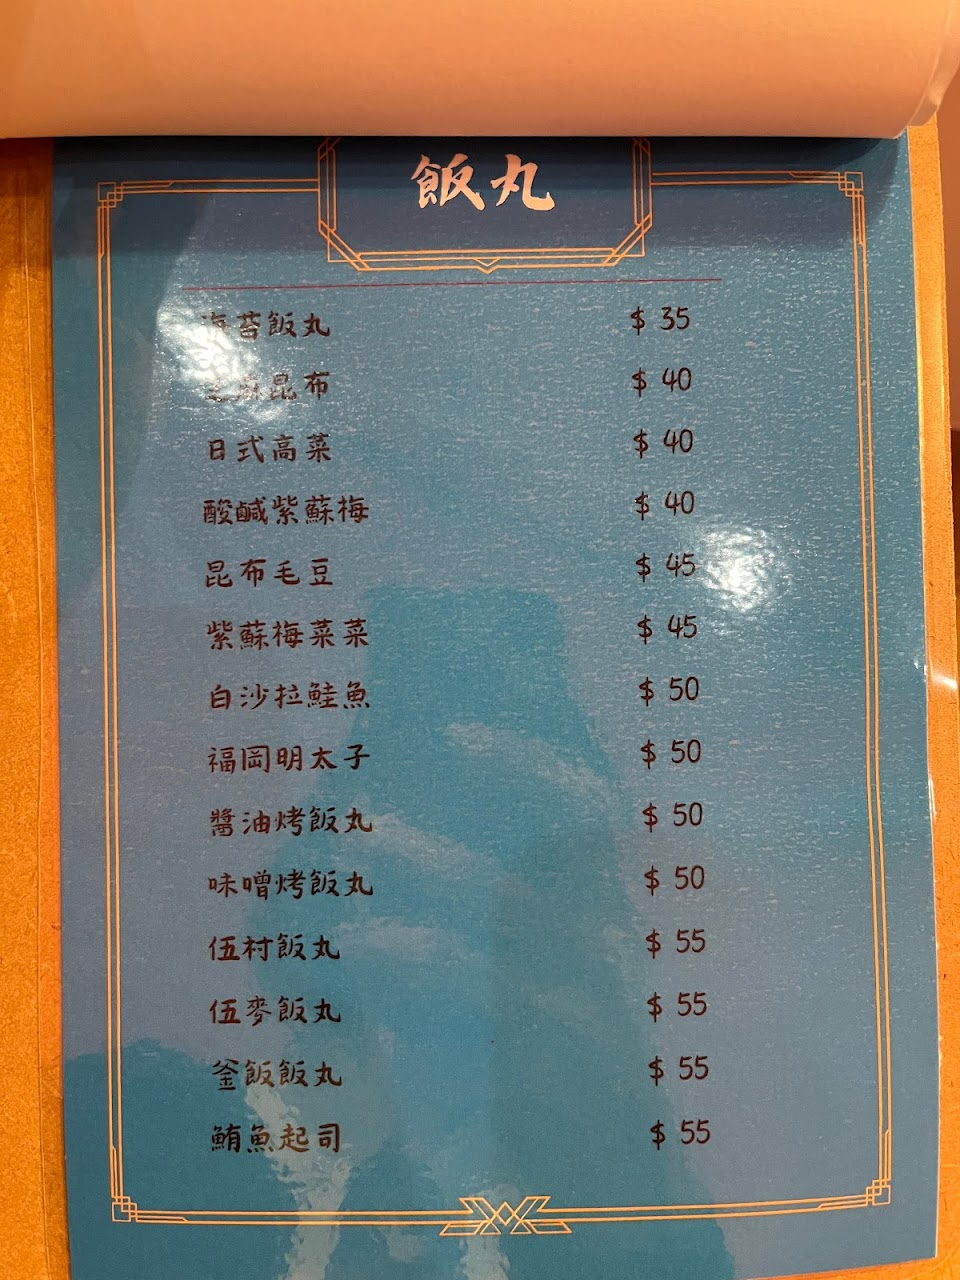 飯丸
海苔飯丸 $ 35
芝麻昆布 $ 40
日式高菜 $ 40
酸鹹紫蘇梅 $ 40
昆布毛豆 $ 45
紫蘇梅菜菜 $ 45
白沙拉鮭魚 $ 50
福岡明太子 $ 50
醬油烤飯丸 $ 50
味噌烤飯丸 $ 50
伍村飯丸 $ 55
伍麥飯丸 $ 55
釜飯飯丸 $ 55
鮪魚起司 $ 55